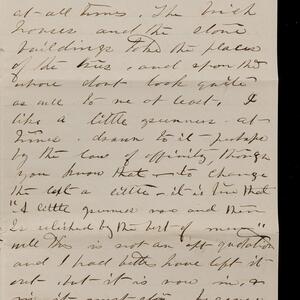 at all times. The brick
houses and the stone
buildings take the places
of the trees, and upon the
whole dont look quite
as well to me at least. I
like a little greenness at
times. drawn to it perhaps
by the law of affinity, though
you know that — to change
the text a little — it is true that
"A little greenness now and then
Is relished by the best of men"
well this is not an apt quotation
and I had better have left it
out, but it is now in, &
in it must stay